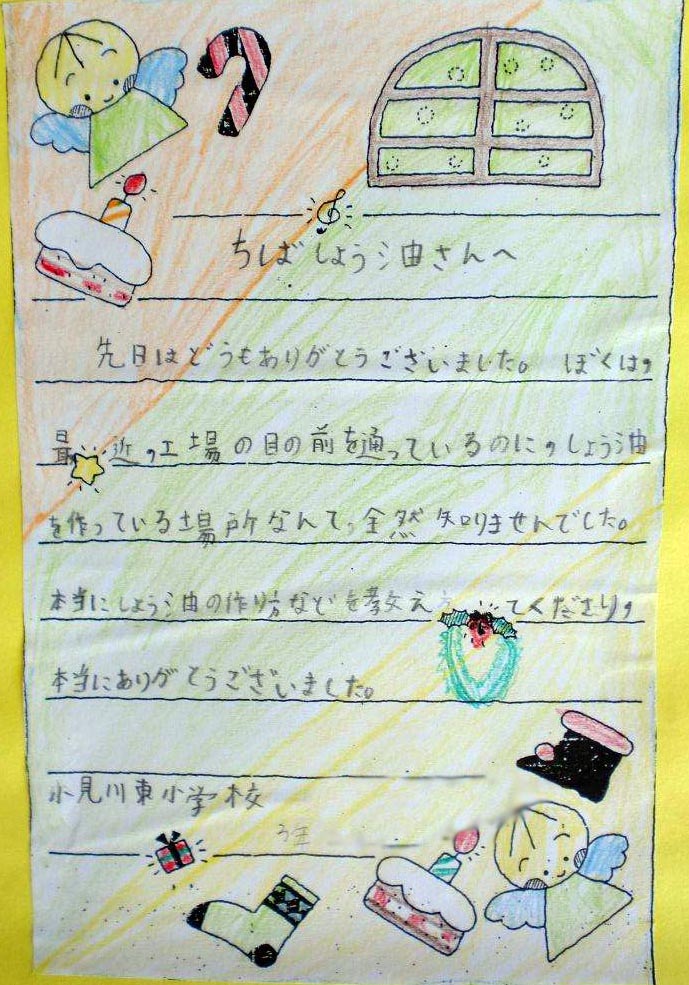 ちばしょう油さんへ
先日はどうもありがとうございました。ぼくは、
最近、工場の目の前を通っているのに、しょう油
を作っている場所なんて、全然知りませんでした。
本当にしょう油の作り方などを教え てくださり、
本当にありがとうございました。
小見川東小学校
3年